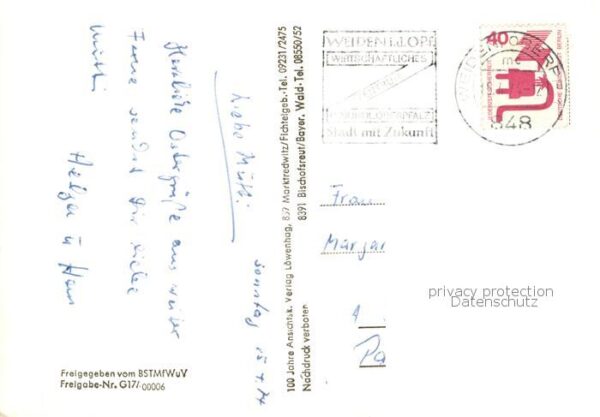 Liebe Mutti
Sonntag 15.4.74
Herzliche Ostergrüße aus weiter
Ferne sendet Dir liebe
Mutti
Helga u Hans
100 Jahre Ansichtsk. Verlag Löwenhag, 859 Marktredwitz/Fichtelgeb.-Tel. 09231/2475
8391 Bischofsreut/Bayer. Wald-Tel. 08550/52
Nachdruck verboten
Freigegeben vom BSTMfWuV
Freigabe-Nr. G17/-00006
WEIDEN I.D.OPF
WIRTSCHAFTLICHES
ZENTRUM
Stadt mit Zukunft
40
848
Frau
Margar
Pa
privacy protection
Datenschutz